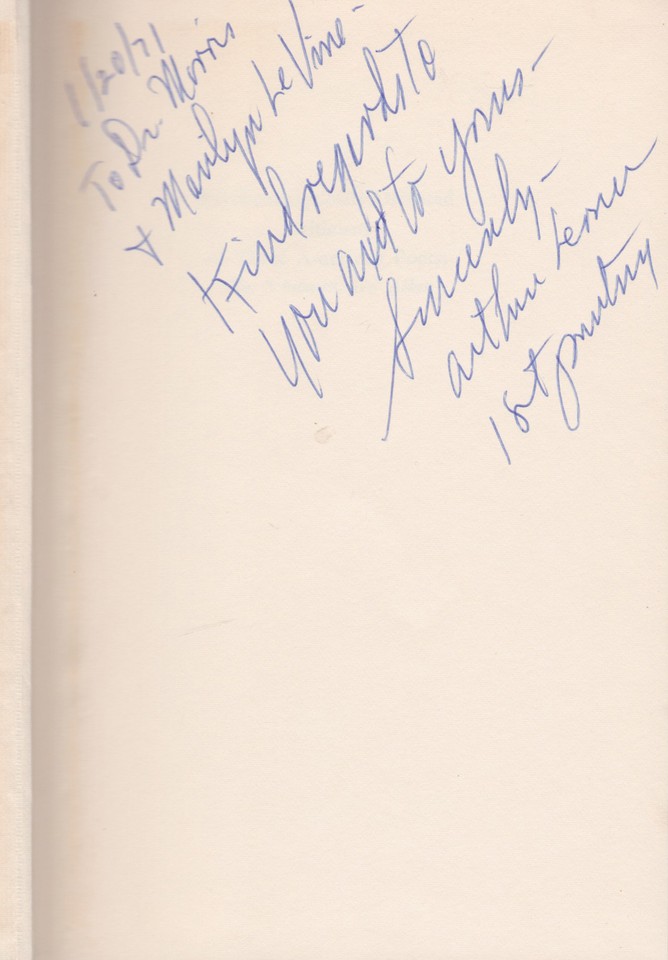 1/20/71
To Dr. Morris
& Marilyn Le Vine -
Kind regards to
you and to yours -
Sincerely -
Arthur Lerner
1st printing